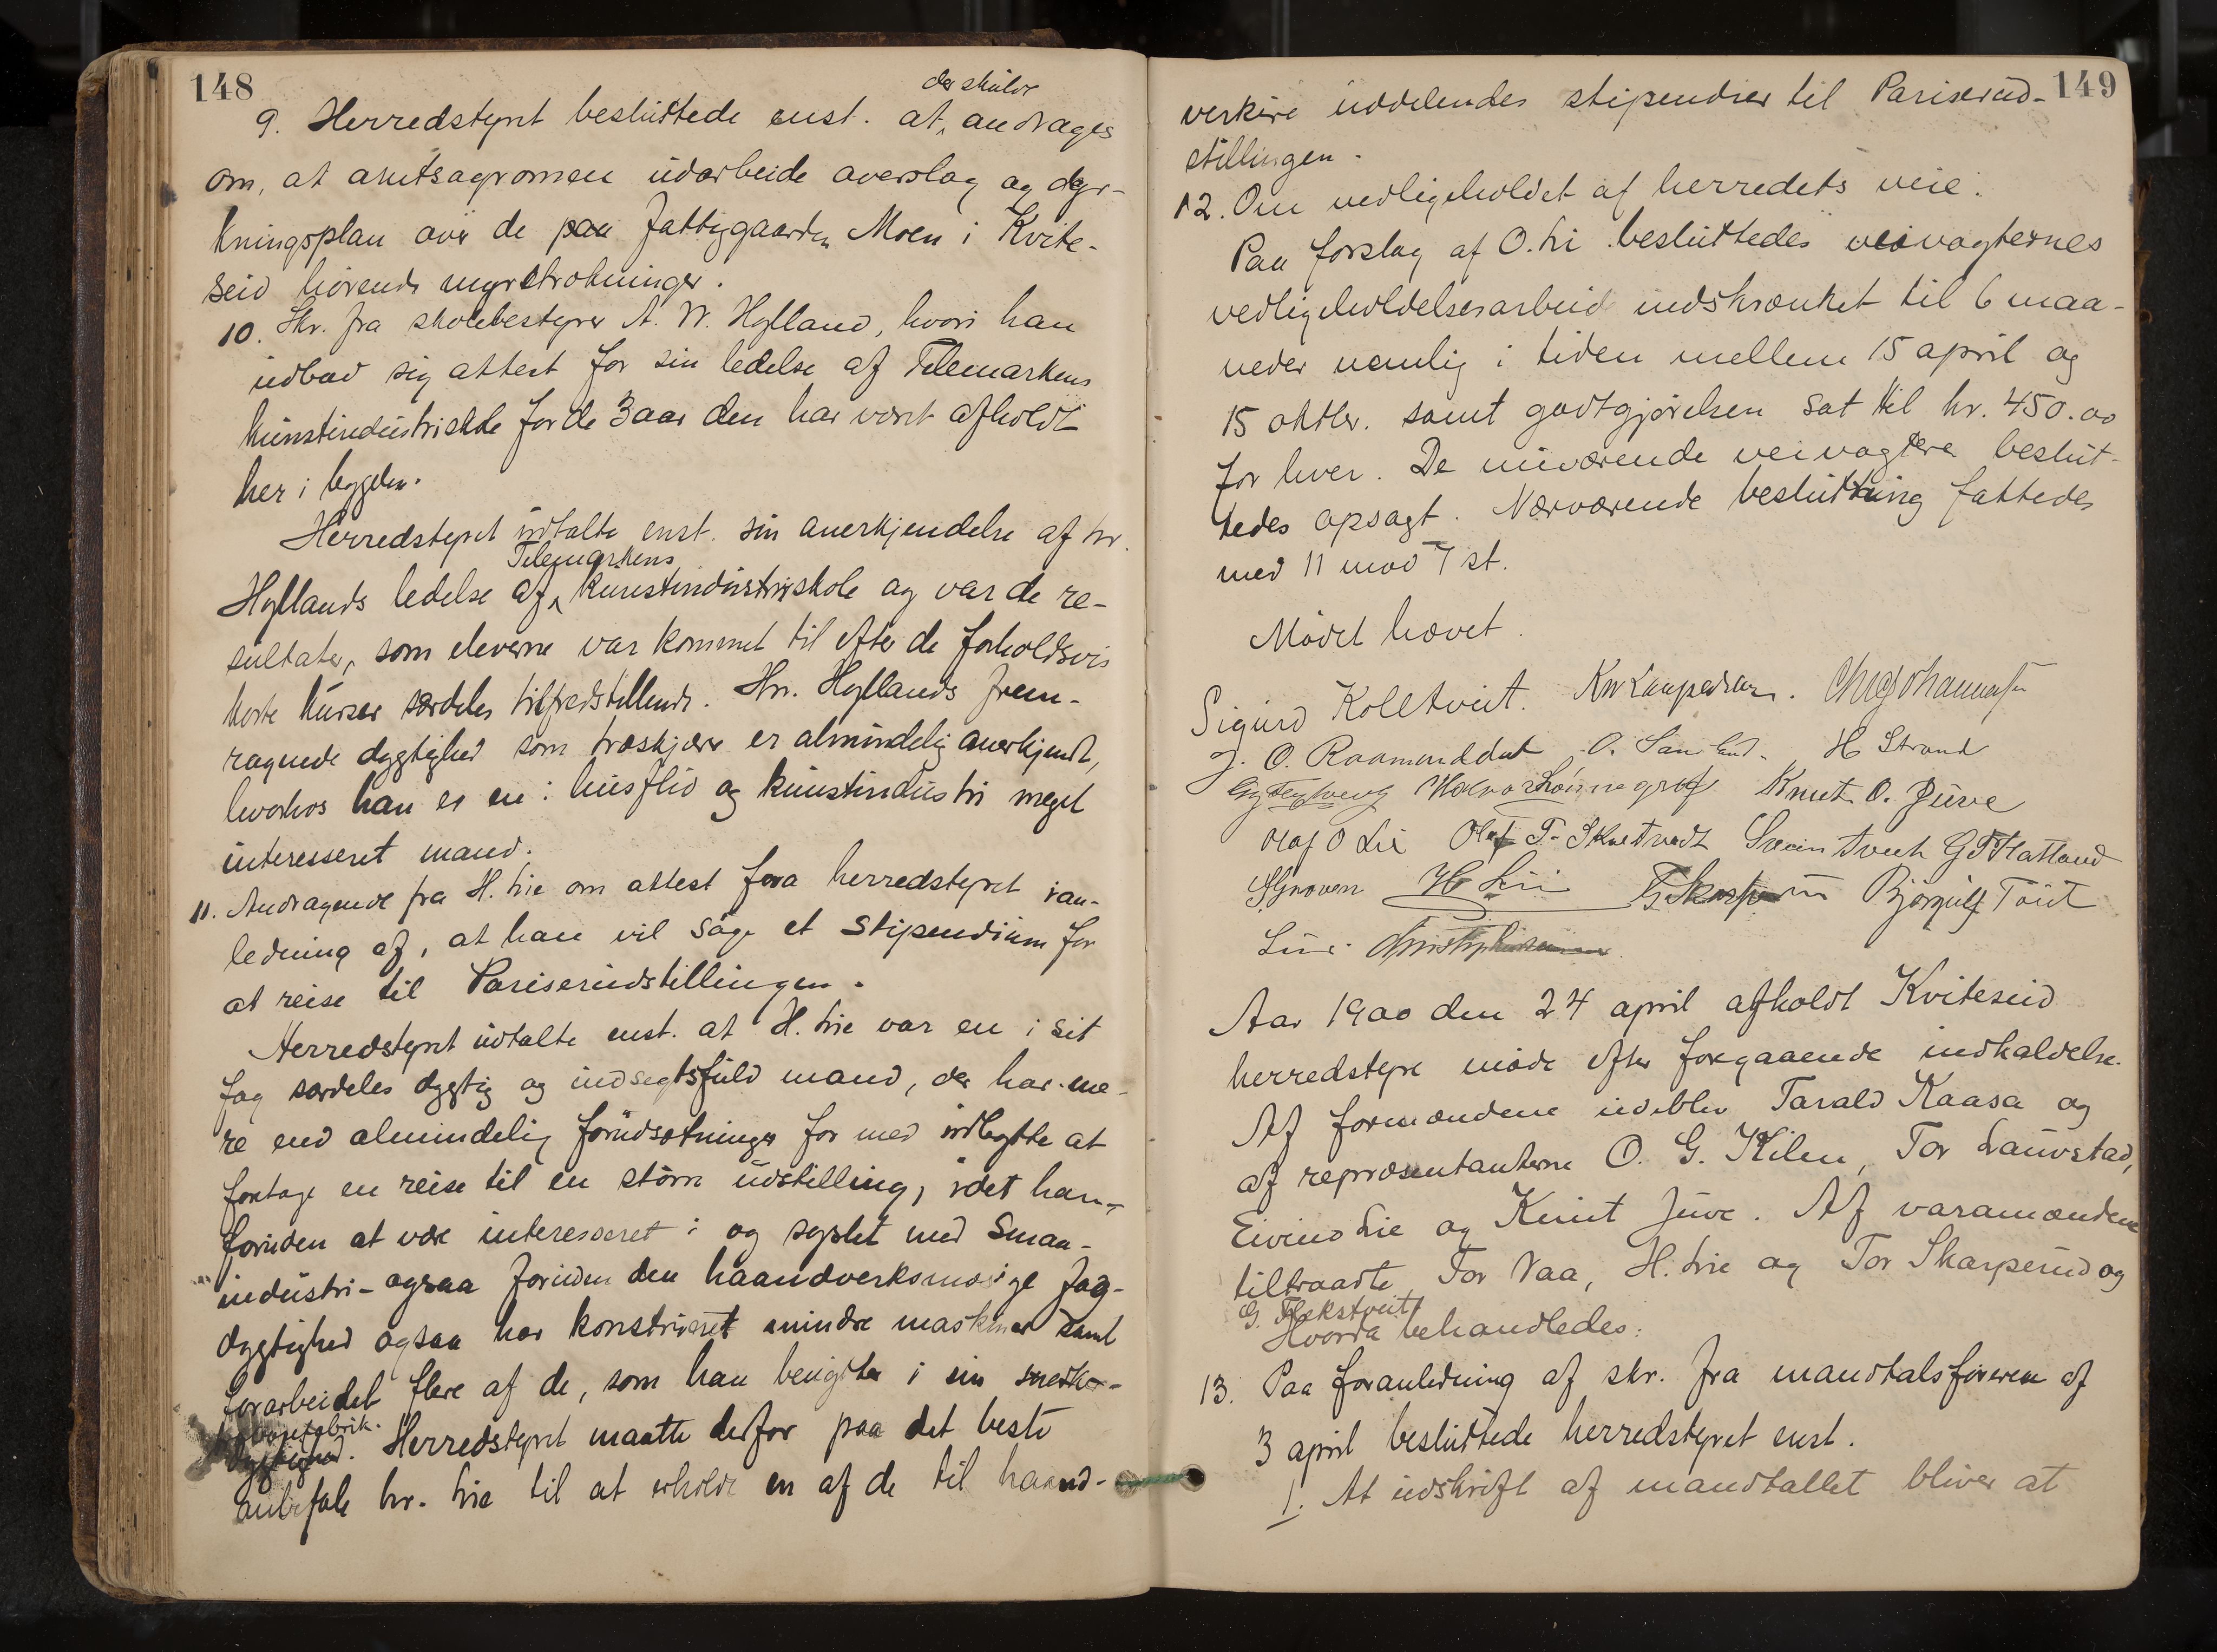 148
der skulde
9. Herredstyret besluttede enst. at andrages
om, at amtsagromen udarbeide overslag og dyr-
kningsplan over de paa Fattiggaarden Moen i Kvite-
seid hørende myrstrækninger.
10. Skr. fra skolebestyrer A. N. Hylland, hvori han
udbad sig attest for sin ledelse af Telemarkens
kunstindustriskole for de 3 aar den har vært afholdt
her i bygden.
Herredstyret udtalte enst. sin anerkjendelse af hr.
Telemarkens
Hyllands ledelse af kunstindustriskole og var de re-
sultater, som eleverne var kommet til efter de forholdsvis
korte kurser særdeles tilfredstillende. Hr. Hyllands frem-
ragende dygtighed som træskjærer er almindelig anerkjendt,
hvorhos han er en i husflid og kunstindustri meget
interesseret mand.
11. Andragende fra H. Lie om attest fra herredstyret ian-
ledning af, at han vil søge et stipendium for
at reise til Pariserudstillingen.
Herredstyret udtalte enst. at H. Lie var en i sit
fag særdeles dygtig og indsegtsfuld mand, der har me-
re end almindelig forudsætninger for med udbytte at
foretage en reise til en større udstilling, idet han,
foruden at være interesseret i og syslet med smaa-
industri- ogsaa foruden den haandverksmæsige fag-
dygtighed ogsaa har konstrueret mindre maskiner samt
forarbeidet flere af de, som han benytter i sin snedker-
varefabrik.
dygtighed. Herredstyret maatte derfor paa det beste
anbefale hr. Lie til at erholde en af de til haand-
149
verkere uddelendes stipendier til Pariserud-
stillingen.
12. Om vedligeholdet af herredets veie.
Paa forslag af O. Li besluttedes veivagternes
vedligeholdelsesarbeid indskrænket til 6 maa-
neder nemlig i tiden mellem 15 april og
15 oktbr. samt godtgjørelsen sat til kr. 450.00
for hver. De nuværende veivagtere beslut-
tedes opsagt. Nærværende beslutning fattedes
med 11 mod 7 st.
Mødet hævet.
Sigurd Kolltveit. Chr Johannesen
J. O. Raamunddal O. Sandland. H Strand
Halvor Knut O. Juve
Olaf O Lie Olaf T. Svein Tveit G T Flatland
H Lie T. Skarprud Bjørgulf Tøit
Christophersen
Aar 1900 den 24 april afholdt Kviteseid
herredstyre møde efter foregaaende indkaldelse.
Af formændene udeblev Tarald Kaasa og
af repræsentanterne O. G. Kilen, Tor Lauvstad,
Eivind Lie og Knut Juve. Af varamændene
tiltraadte Tor Vaa, H. Lie og Tor Skarperud og
G. Flekstveit
Hvorda behandledes:
13. Paa foranledning af skr. fra mandtalsføreren af
3 april besluttede herredstyret enst.
1. At udskrift af mandtallet bliver at